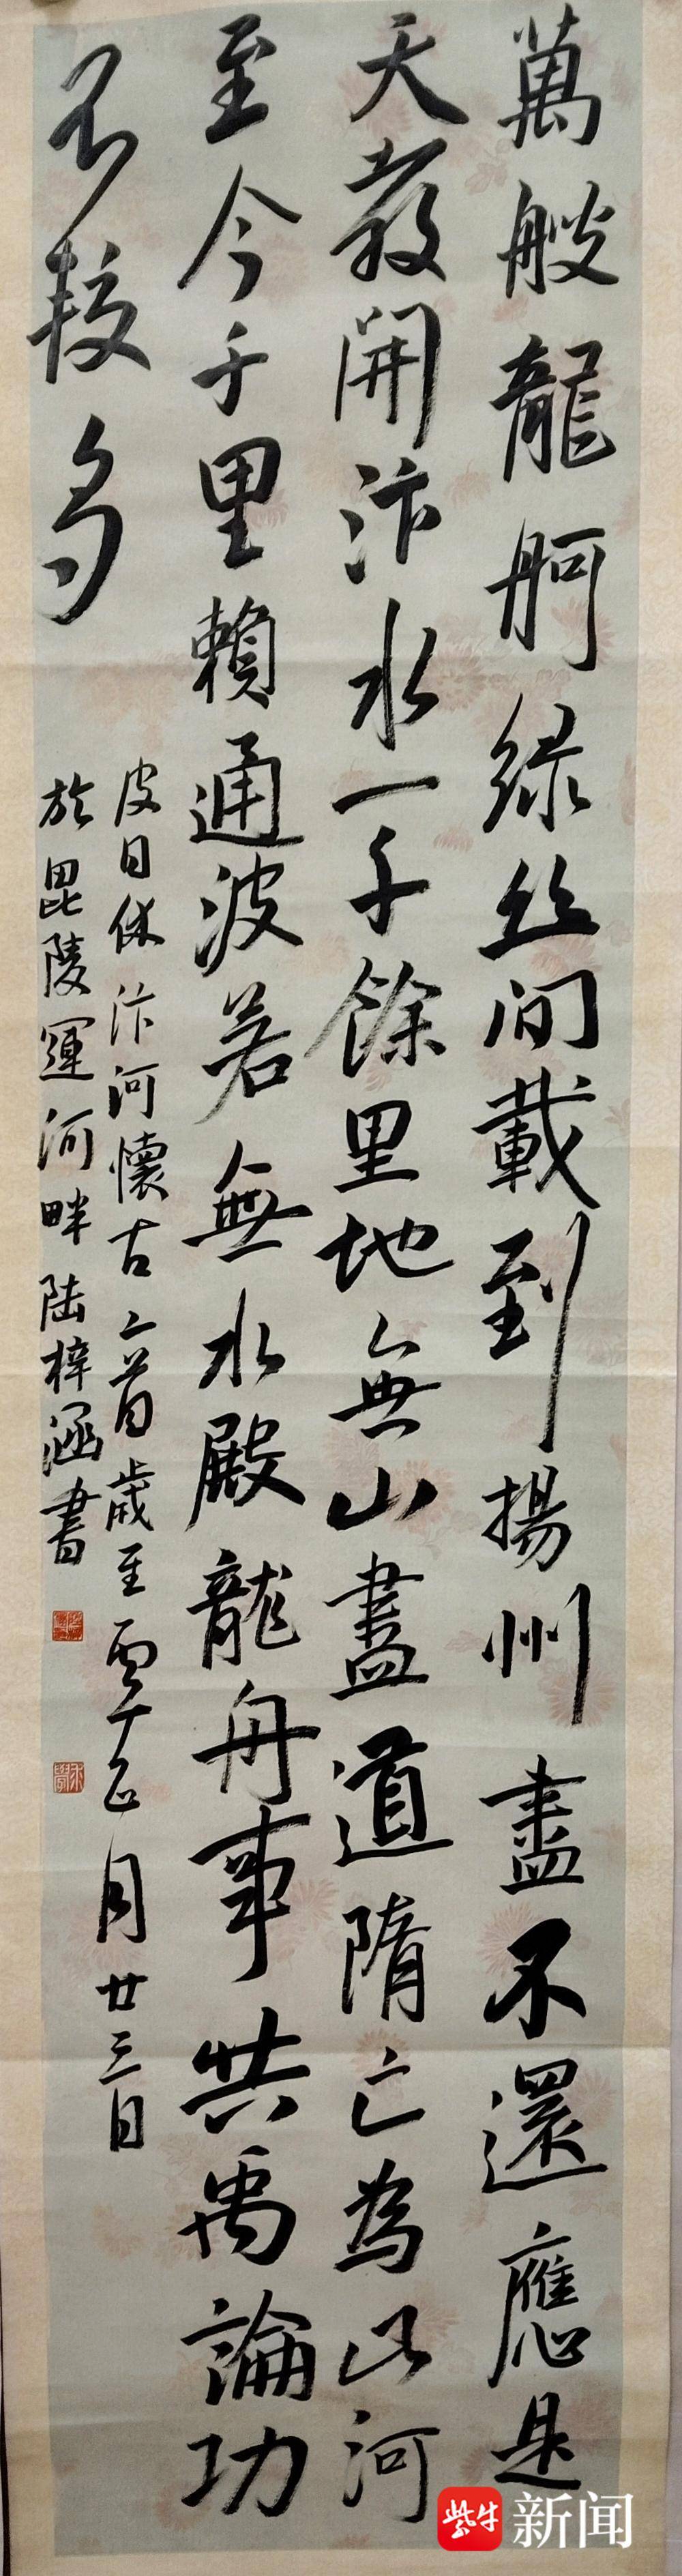 萬艘龍舸緑丝间載到揚州盡不還應是
天教開汴水一千餘里地無山盡道隋亡為此河
至今千里賴通波若無水殿龍舟事共禹論功
不較多
皮日休汴河懷古二首歲至月廿三日
於毘陵運河畔陆梓涵書
紫牛新闻